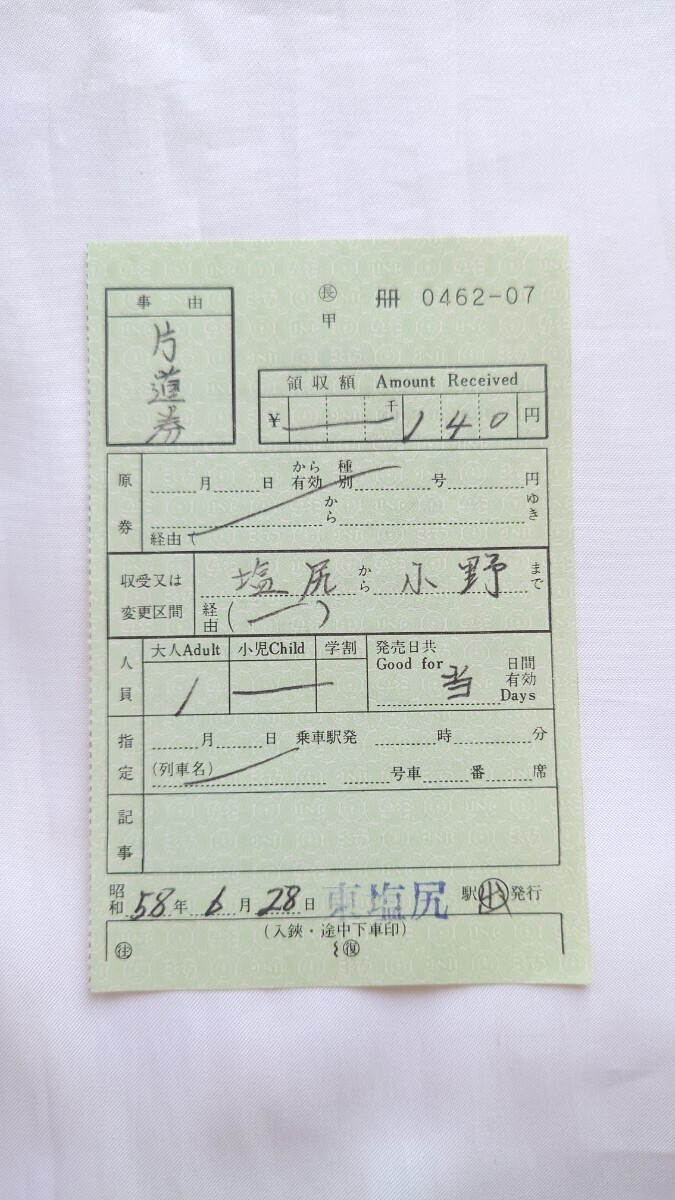 事由
片道券
㊞長 甲 冊 0462-07
領収額 Amount Received
¥ 千 140 円
原券
月 日 から有効 種別 号 円
から ゆき
経由(
収受又は変更区間
塩尻 から 小野 まで
経由( )
人員
大人Adult 小児Child 学割
1
発売日共 Good for 当 日間有効 Days
指定
月 日 乗車駅発 時 分
(列車名) 号車 番 席
記事
昭和58年6月28日 東塩尻 駅 出 発行
(入鋏・途中下車印)
往 復